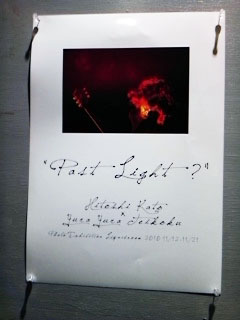 "Past Light?"
Hitoshi Kato
×
Yura Yura Teikoku
Photo Exhibition 2010.11/12-11/21